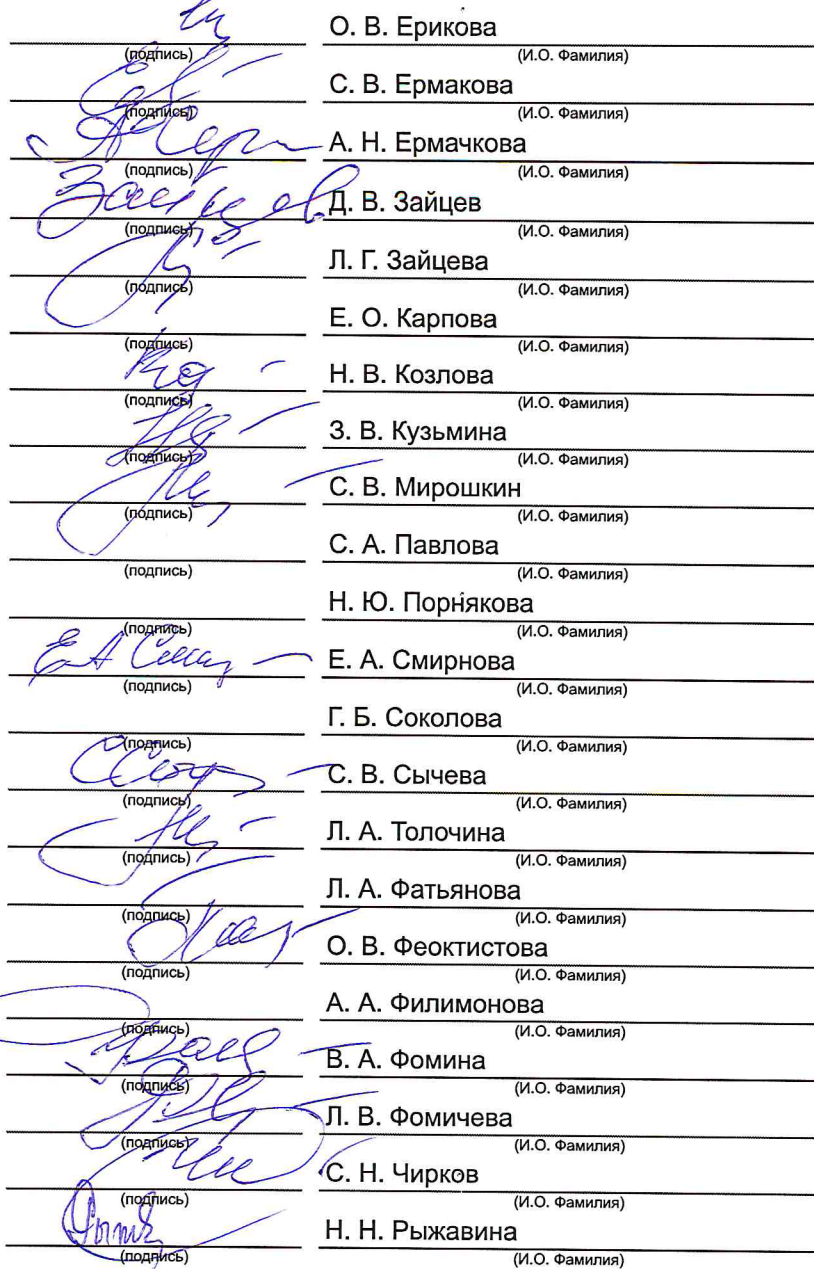 О. В. Ерикова
(подпись) (И.О. Фамилия)
С. В. Ермакова
(подпись) (И.О. Фамилия)
А. Н. Ермачкова
(подпись) (И.О. Фамилия)
Зайцев Д. В. Зайцев
(подпись) (И.О. Фамилия)
Л. Г. Зайцева
(подпись) (И.О. Фамилия)
Е. О. Карпова
(подпись) (И.О. Фамилия)
Н. В. Козлова
(подпись) (И.О. Фамилия)
З. В. Кузьмина
(подпись) (И.О. Фамилия)
С. В. Мирошкин
(подпись) (И.О. Фамилия)
С. А. Павлова
(подпись) (И.О. Фамилия)
Н. Ю. Порнякова
(подпись) (И.О. Фамилия)
Е. А. Смирнова
(подпись) (И.О. Фамилия)
Г. Б. Соколова
(подпись) (И.О. Фамилия)
С. В. Сычева
(подпись) (И.О. Фамилия)
Л. А. Толочина
(подпись) (И.О. Фамилия)
Л. А. Фатьянова
(подпись) (И.О. Фамилия)
О. В. Феоктистова
(подпись) (И.О. Фамилия)
А. А. Филимонова
(подпись) (И.О. Фамилия)
В. А. Фомина
(подпись) (И.О. Фамилия)
Л. В. Фомичева
(подпись) (И.О. Фамилия)
С. Н. Чирков
(подпись) (И.О. Фамилия)
Н. Н. Рыжавина
(подпись) (И.О. Фамилия)